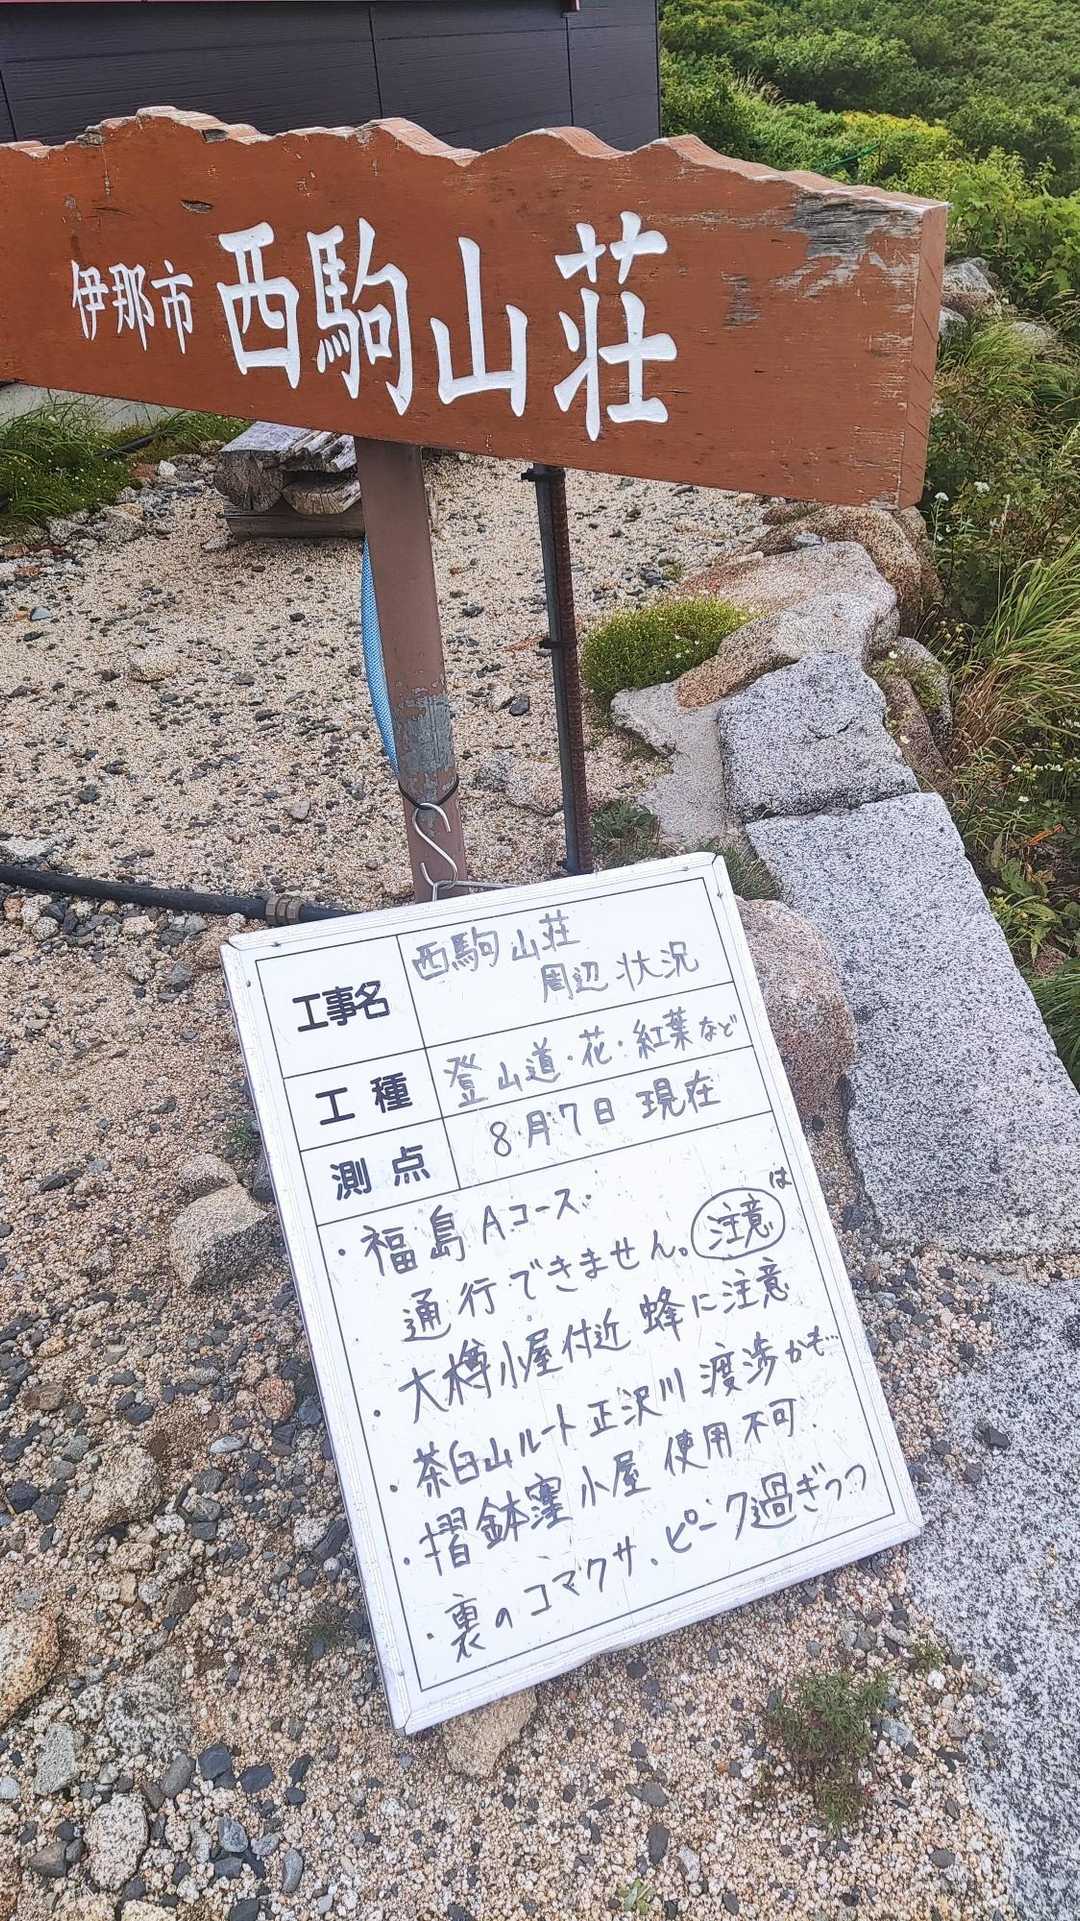 伊那市 西駒山荘
工事名 西駒山荘
周辺状況
工種 登山道・花・紅葉など
測点 8月7日 現在
・福島Aコース は
通行できません。 注意
・大樽小屋付近 蜂に注意
・茶臼山ルート 正沢川 渡渉かも
・摺鉢窪小屋 使用不可.
・裏のコマクサ、ピーク過ぎつつ